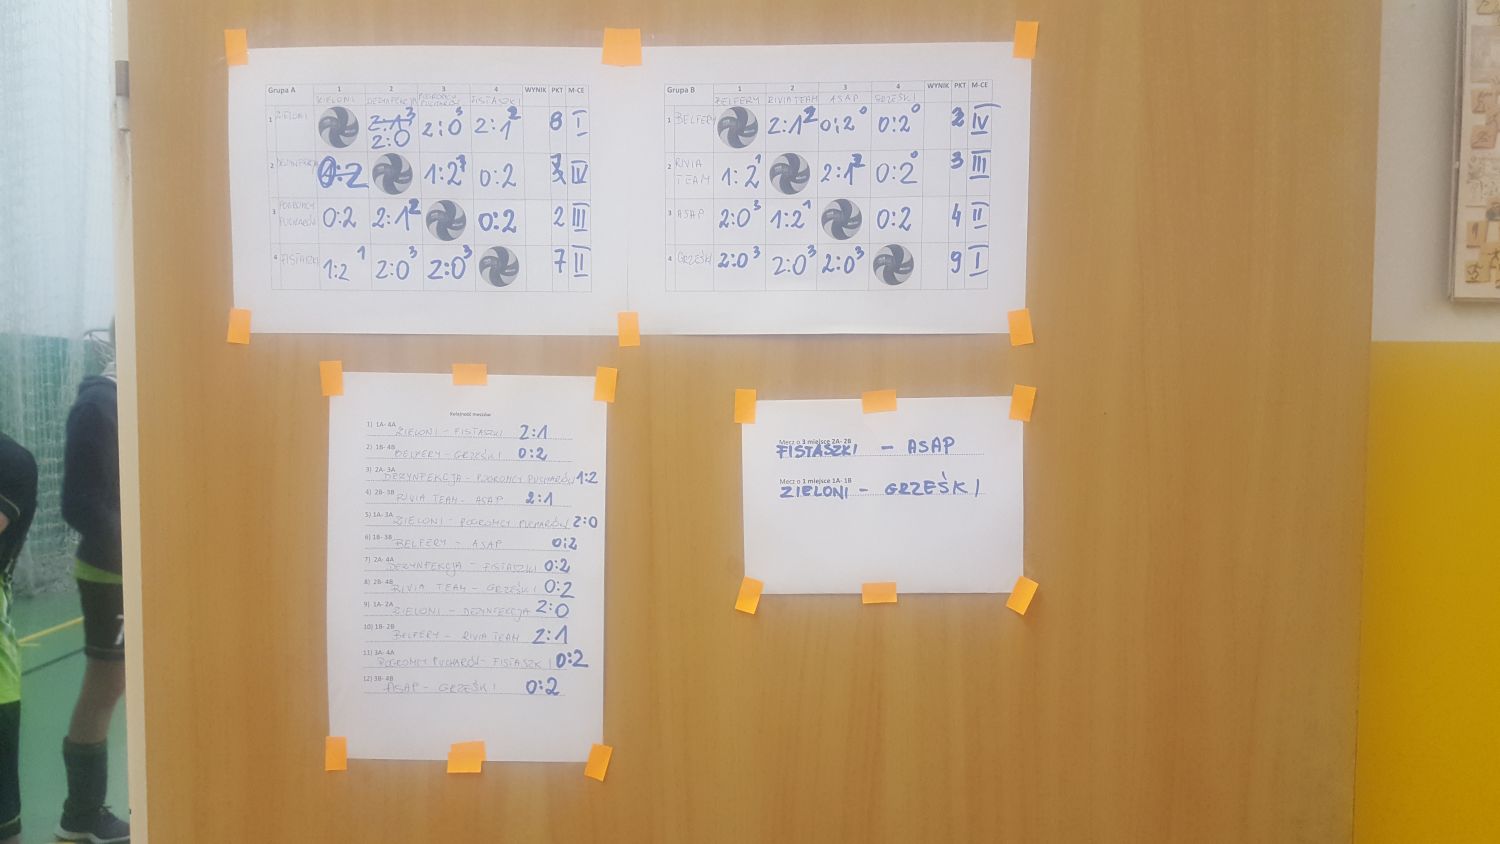 Grupa A 1 2 3 4 WYNIK PKT M-CE
ZIELONI DEZYNFEKCJA POGROMCY PUCHARÓW FISTASZKI
1 ZIELONI 2:0 2:0 3 2:1 2 8 I
2 DEZYNFEKCJA 0:2 1:2 0:2 IV
3 POGROMCY PUCHARÓW 0:2 2:1 2 0:2 2 III
4 FISTASZKI 1:2 1 2:0 3 2:0 3 7 II
Grupa B 1 2 3 4 WYNIK PKT M-CE
BELFERY RIVIA TEAM ASAP GRZEŚKI
1 BELFERY 2:1 2 0:2 0 0:2 0 2 IV
2 RIVIA TEAM 1:2 1 2:1 2 0:2 0 3 III
3 ASAP 2:0 3 1:2 1 0:2 4 II
4 GRZEŚKI 2:0 3 2:0 3 2:0 3 9 I
Kolejność meczów
1) 1A- 4A ZIELONI - FISTASZKI 2:1
2) 1B- 4B BELFERY - GRZEŚKI 0:2
3) 2A- 3A DEZYNFEKCJA - POGROMCY PUCHARÓW 1:2
4) 2B- 3B RIVIA TEAM - ASAP 2:1
5) 1A- 3A ZIELONI - POGROMCY PUCHARÓW 2:0
6) 1B- 3B BELFERY - ASAP 0:2
7) 2A- 4A DEZYNFEKCJA - FISTASZKI 0:2
8) 2B- 4B RIVIA TEAM - GRZEŚKI 0:2
9) 1A- 2A ZIELONI - DEZYNFEKCJA 2:0
10) 1B- 2B BELFERY - RIVIA TEAM 2:1
11) 3A- 4A POGROMCY PUCHARÓW - FISTASZKI 0:2
12) 3B- 4B ASAP - GRZEŚKI 0:2
Mecz o 3 miejsce 2A- 2B
FISTASZKI - ASAP
Mecz o 1 miejsce 1A- 1B
ZIELONI - GRZEŚKI